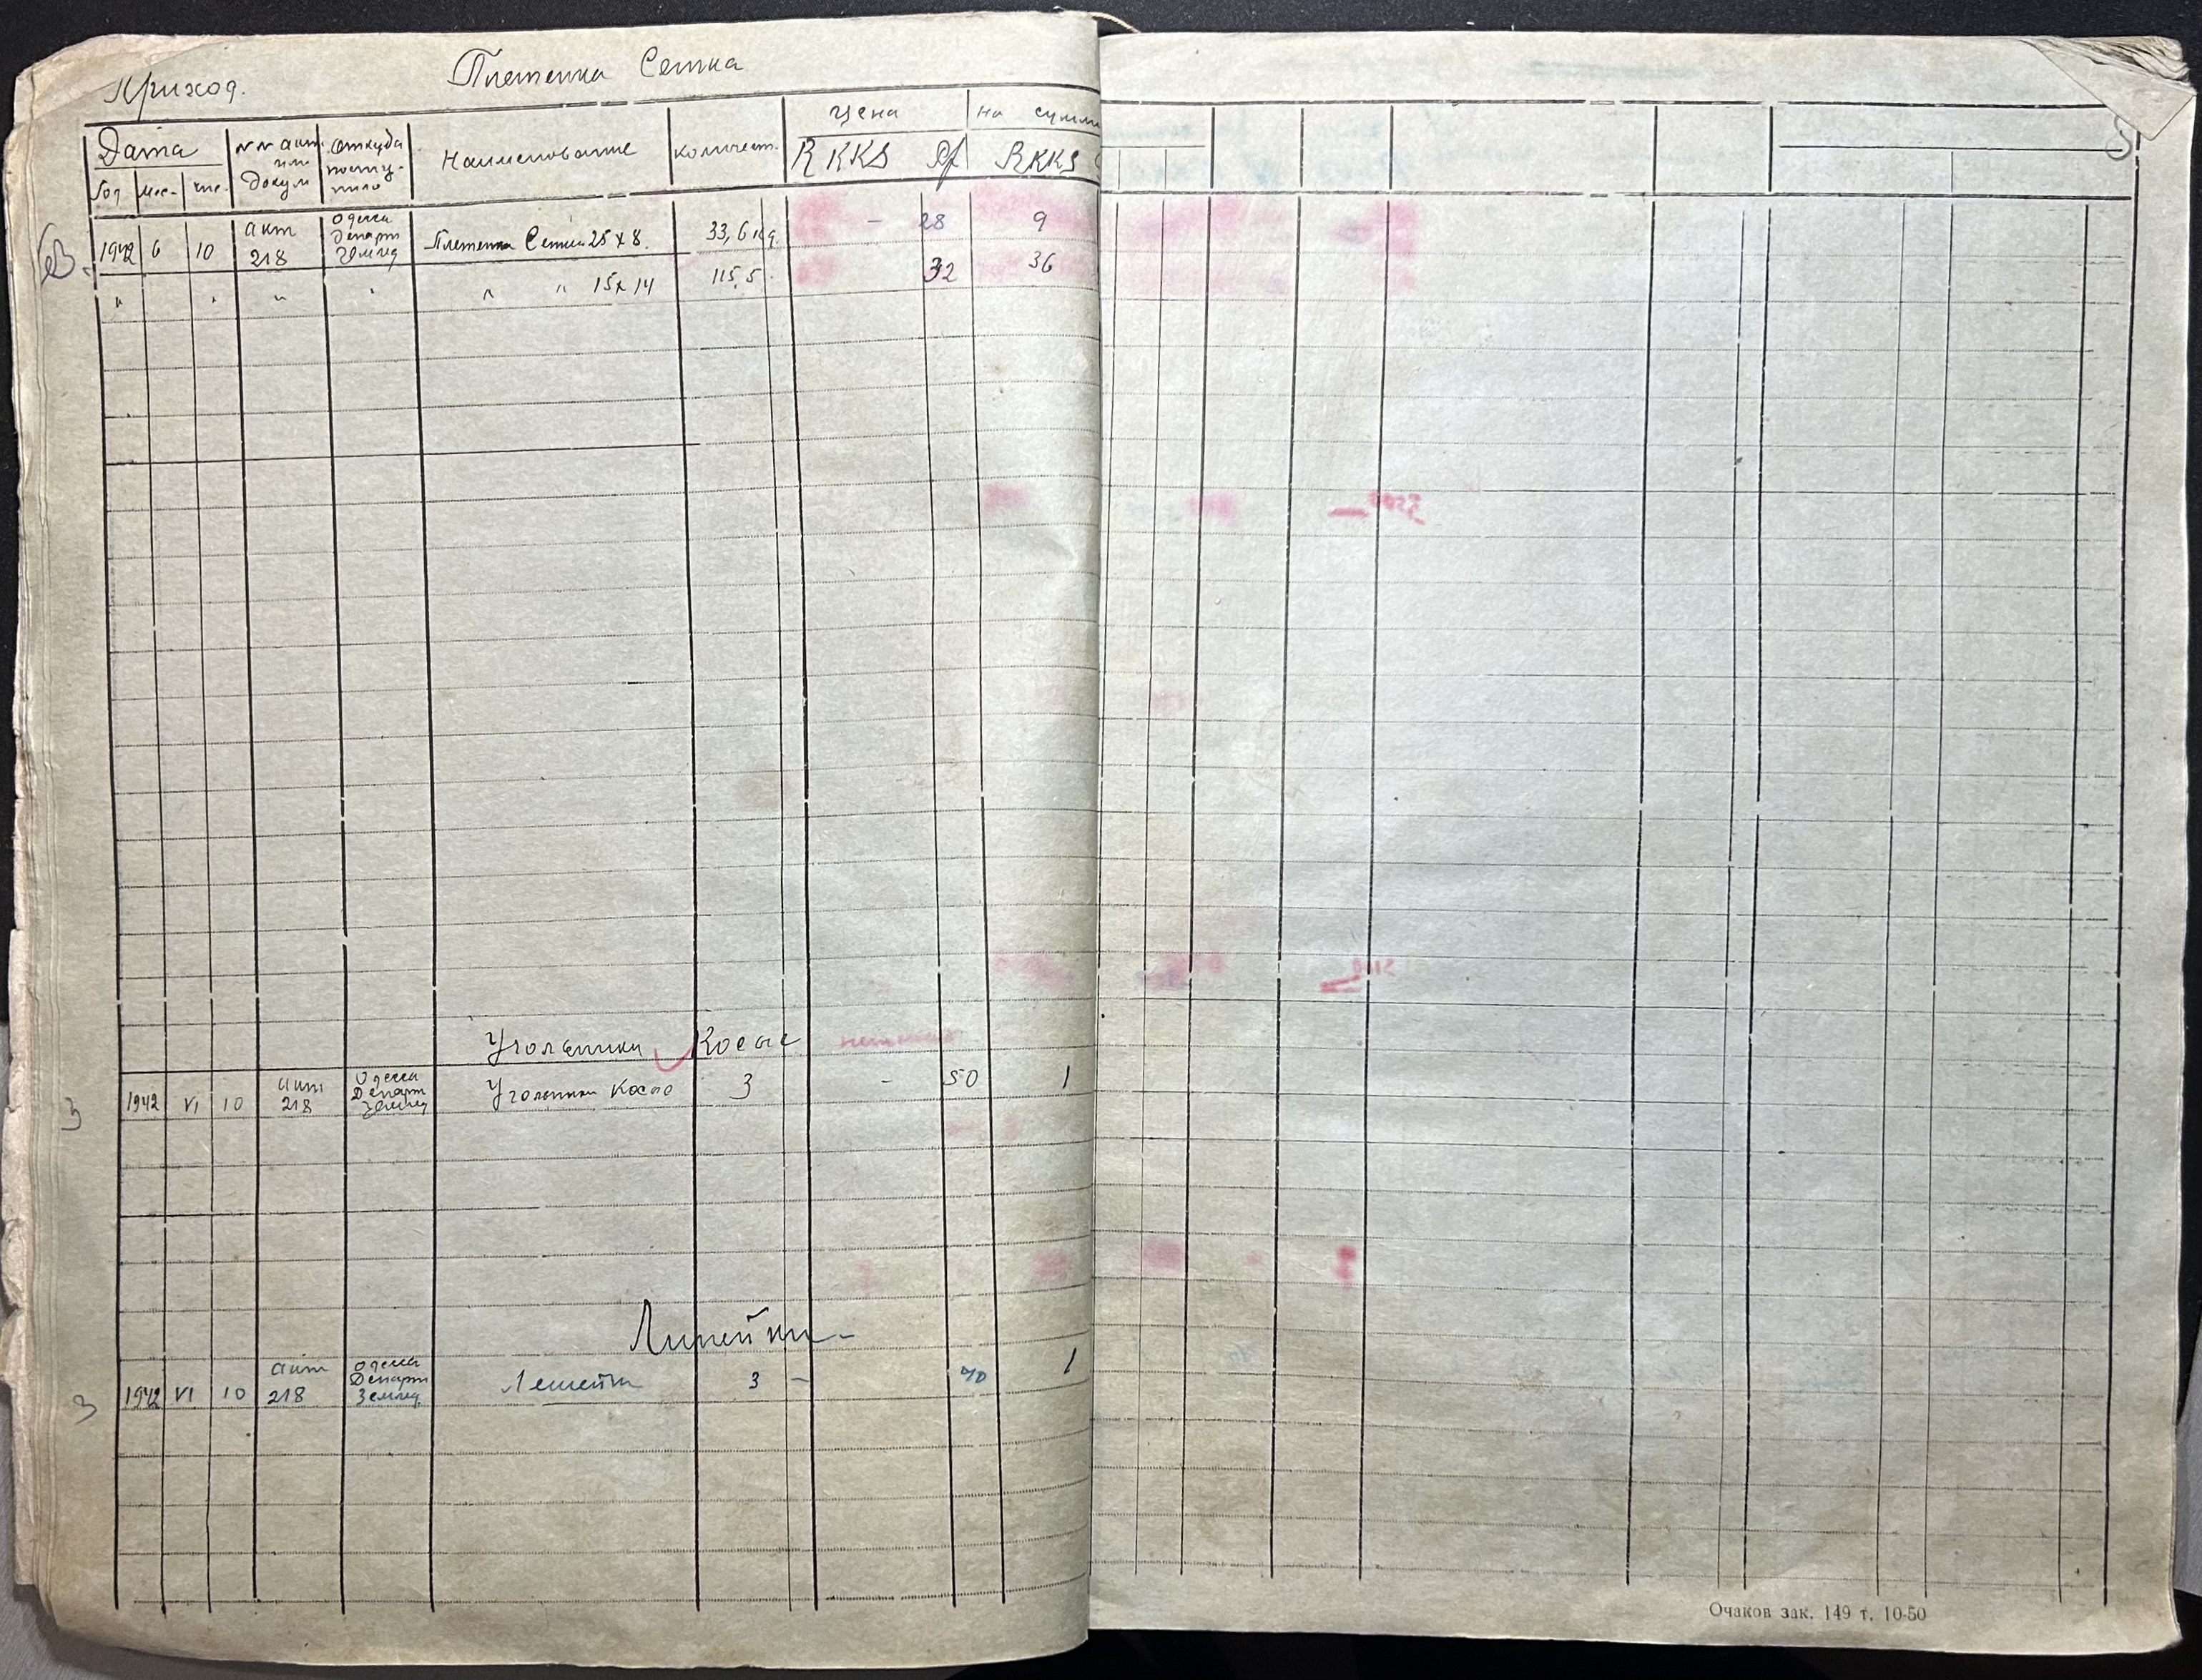 Приход. Плетенка Сетка
Дата №№ акт. или докум Откуда посту-пило Наименование Количест. Цена на сумму
Год Мес. чис. RKKS Pf RKKS
1942 6 10 акт 218 Одесса Департ Землед Плетенка Сетка 25 х 8. 33,6 кд - 28 9
" " " " " " 15 х 14 115,5 32 36
Угольники Косые
1942 VI 10 акт 218 Одесса Департ Землед Угольники Косые 3 - 50 1
3
Линейки
1942 VI 10 акт 218 Одесса Департ Землед 3 - 70 1
3
Очаков зак. 149 т. 10-50